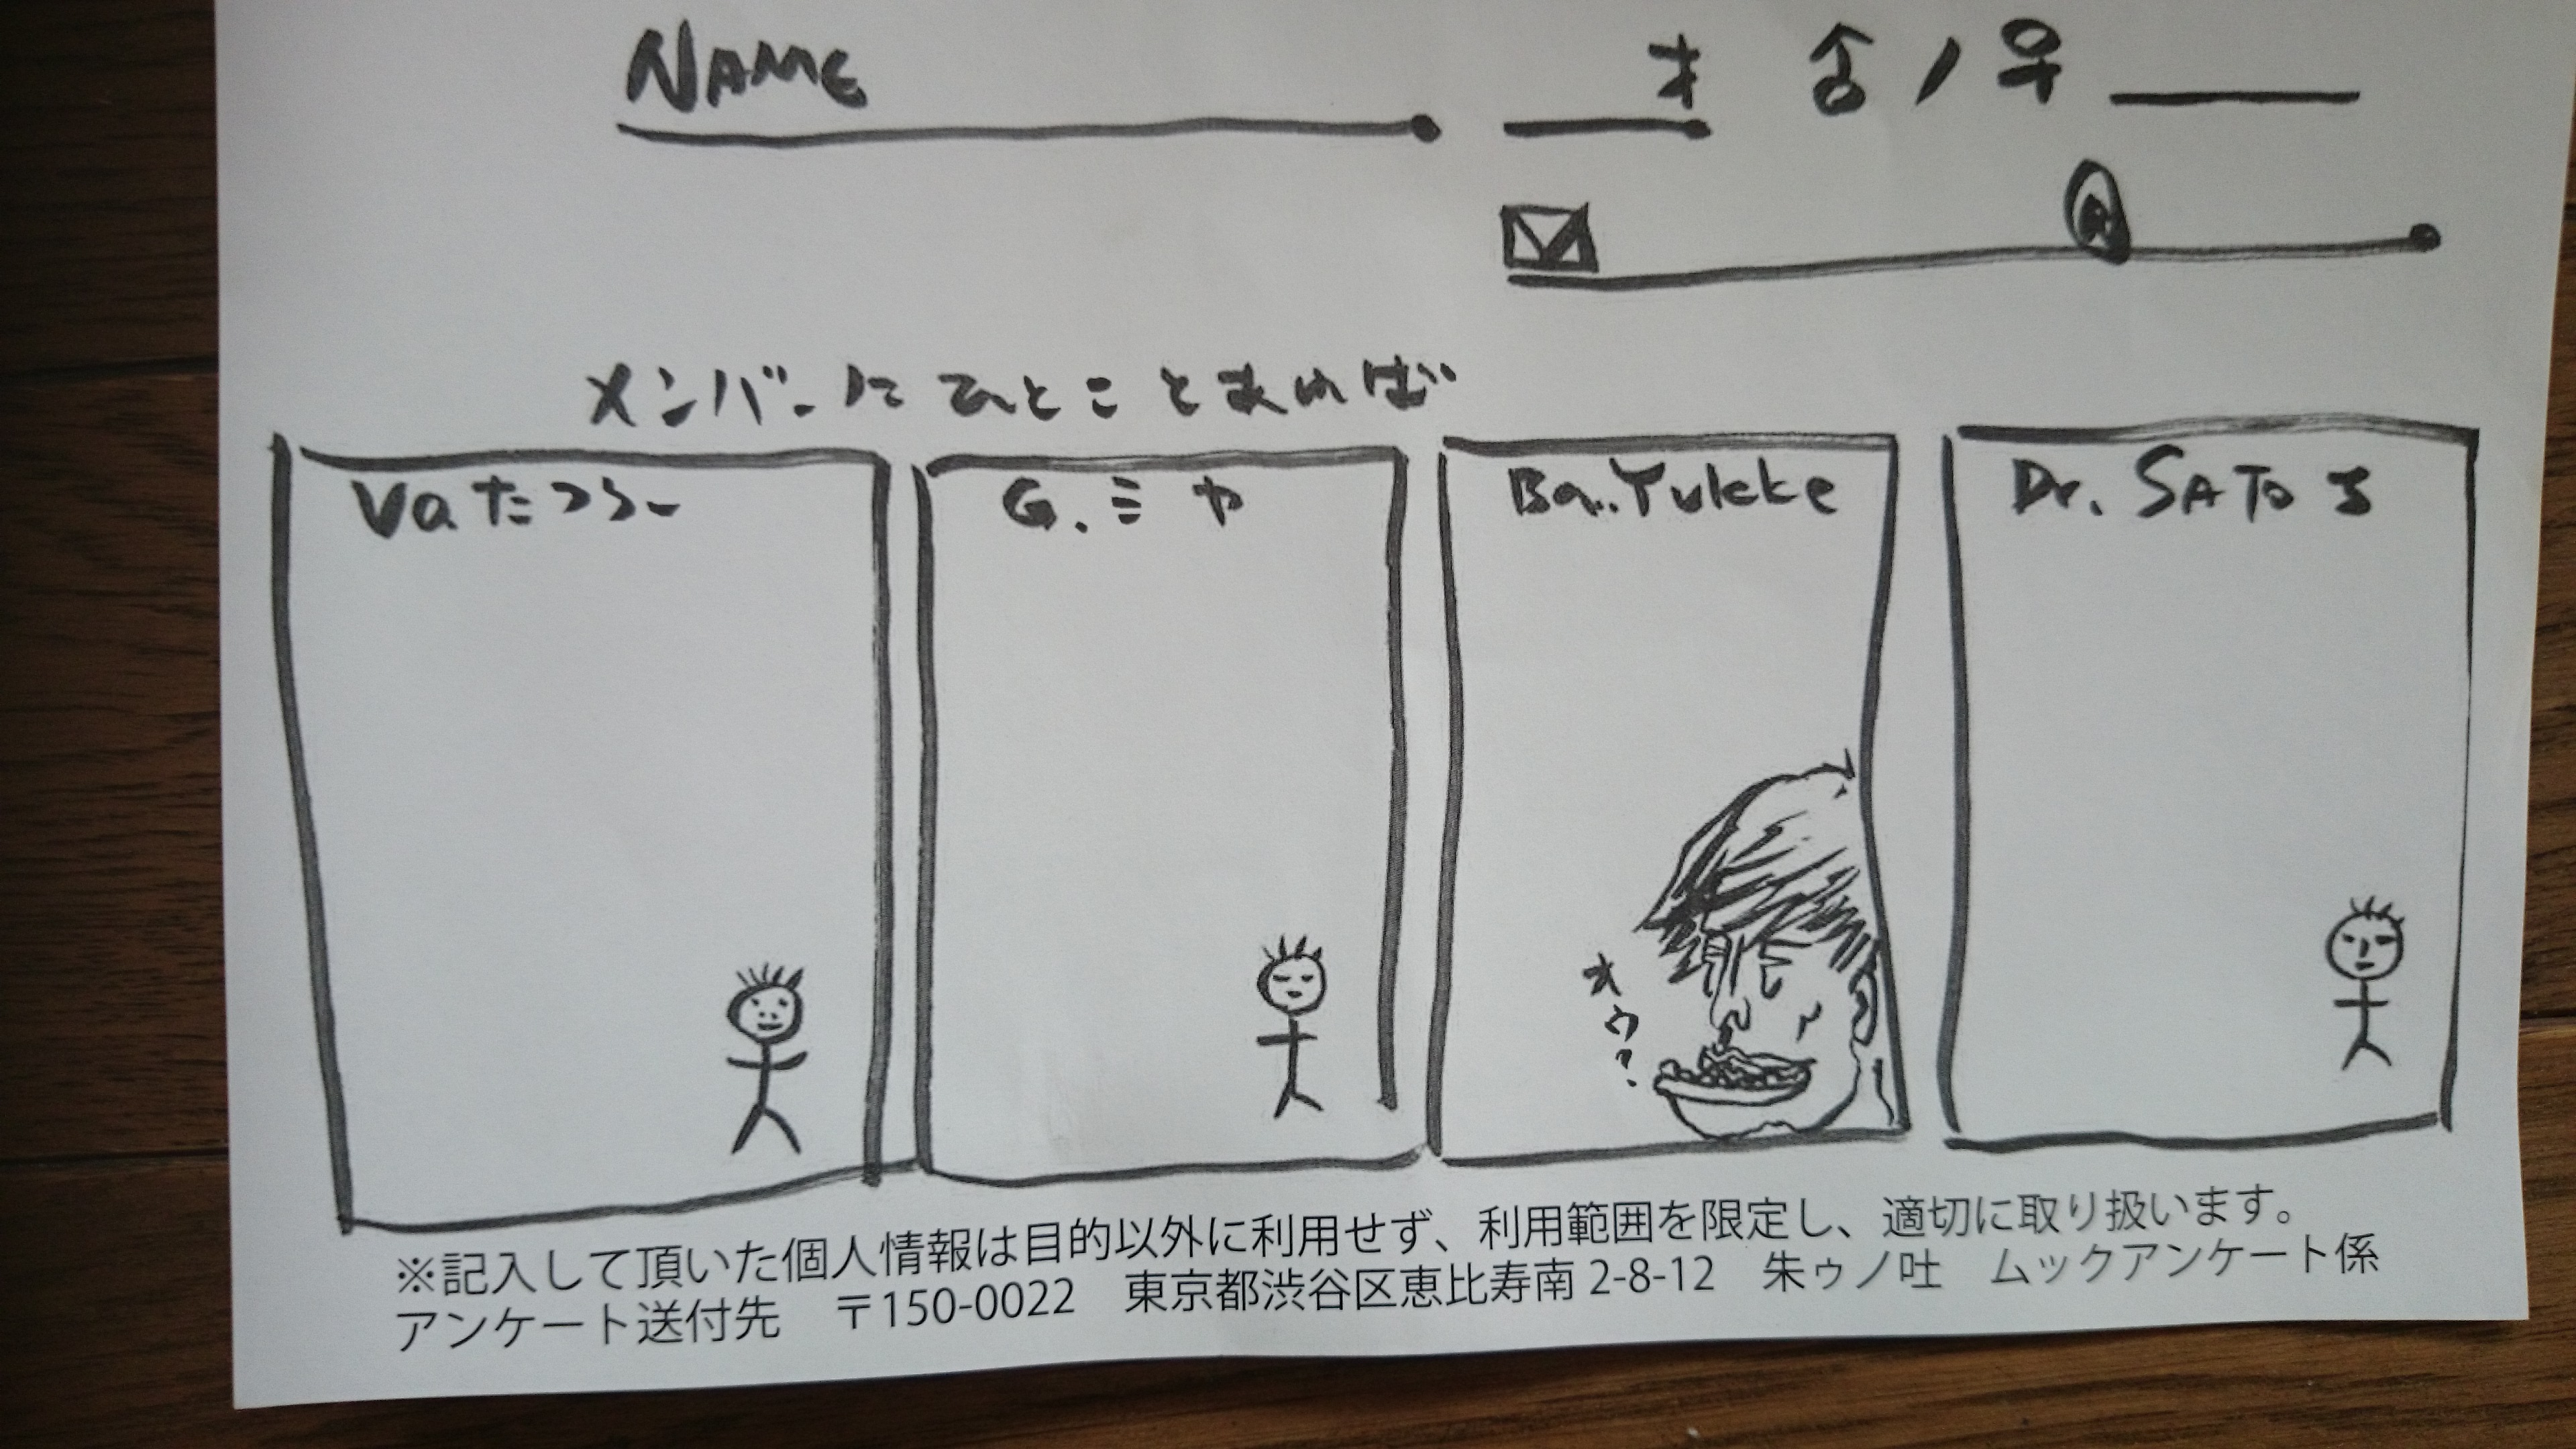 NAME 才 ♂ / ♀
@
メンバーにひとことあれば
Vo.たつろー
G.ミヤ
Ba.Yukke
Dr.SATOち
オゥ?
※記入して頂いた個人情報は目的以外に利用せず、利用範囲を限定し、適切に取り扱います。
アンケート送付先 〒150-0022 東京都渋谷区恵比寿南 2-8-12 朱ゥノ吐 ムックアンケート係